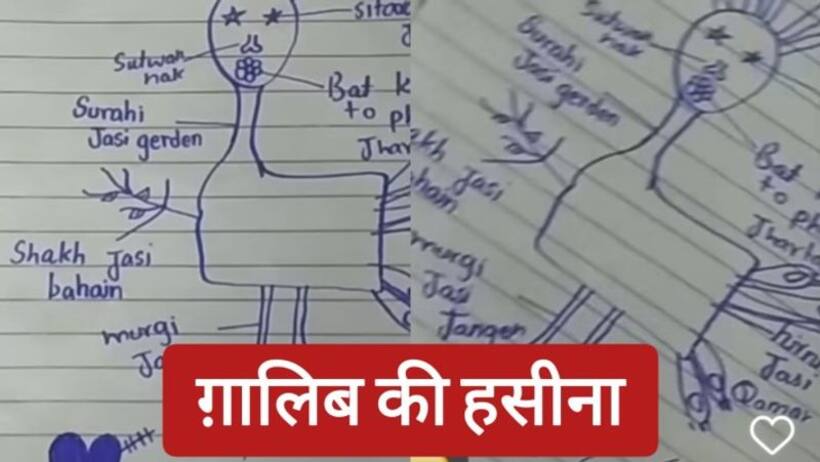 sitaa
Sutwan
nak
Bat k
to ph
Jhar
Surahi
Jasi gerden
Shakh Jasi
bahain
murgi
Ja
Sutwan
nak
Surahi
Jasi gerden
Bat
to ph
Jharh
kh Jasi
hain
murgi
Jasi
Jangen
hirni
Jasi
Qamar
ग़ालिब की हसीना